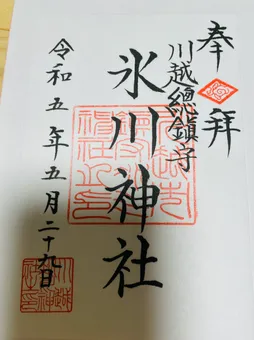 奉拝
川越總鎮守
氷川神社
令和五年五月二十九日